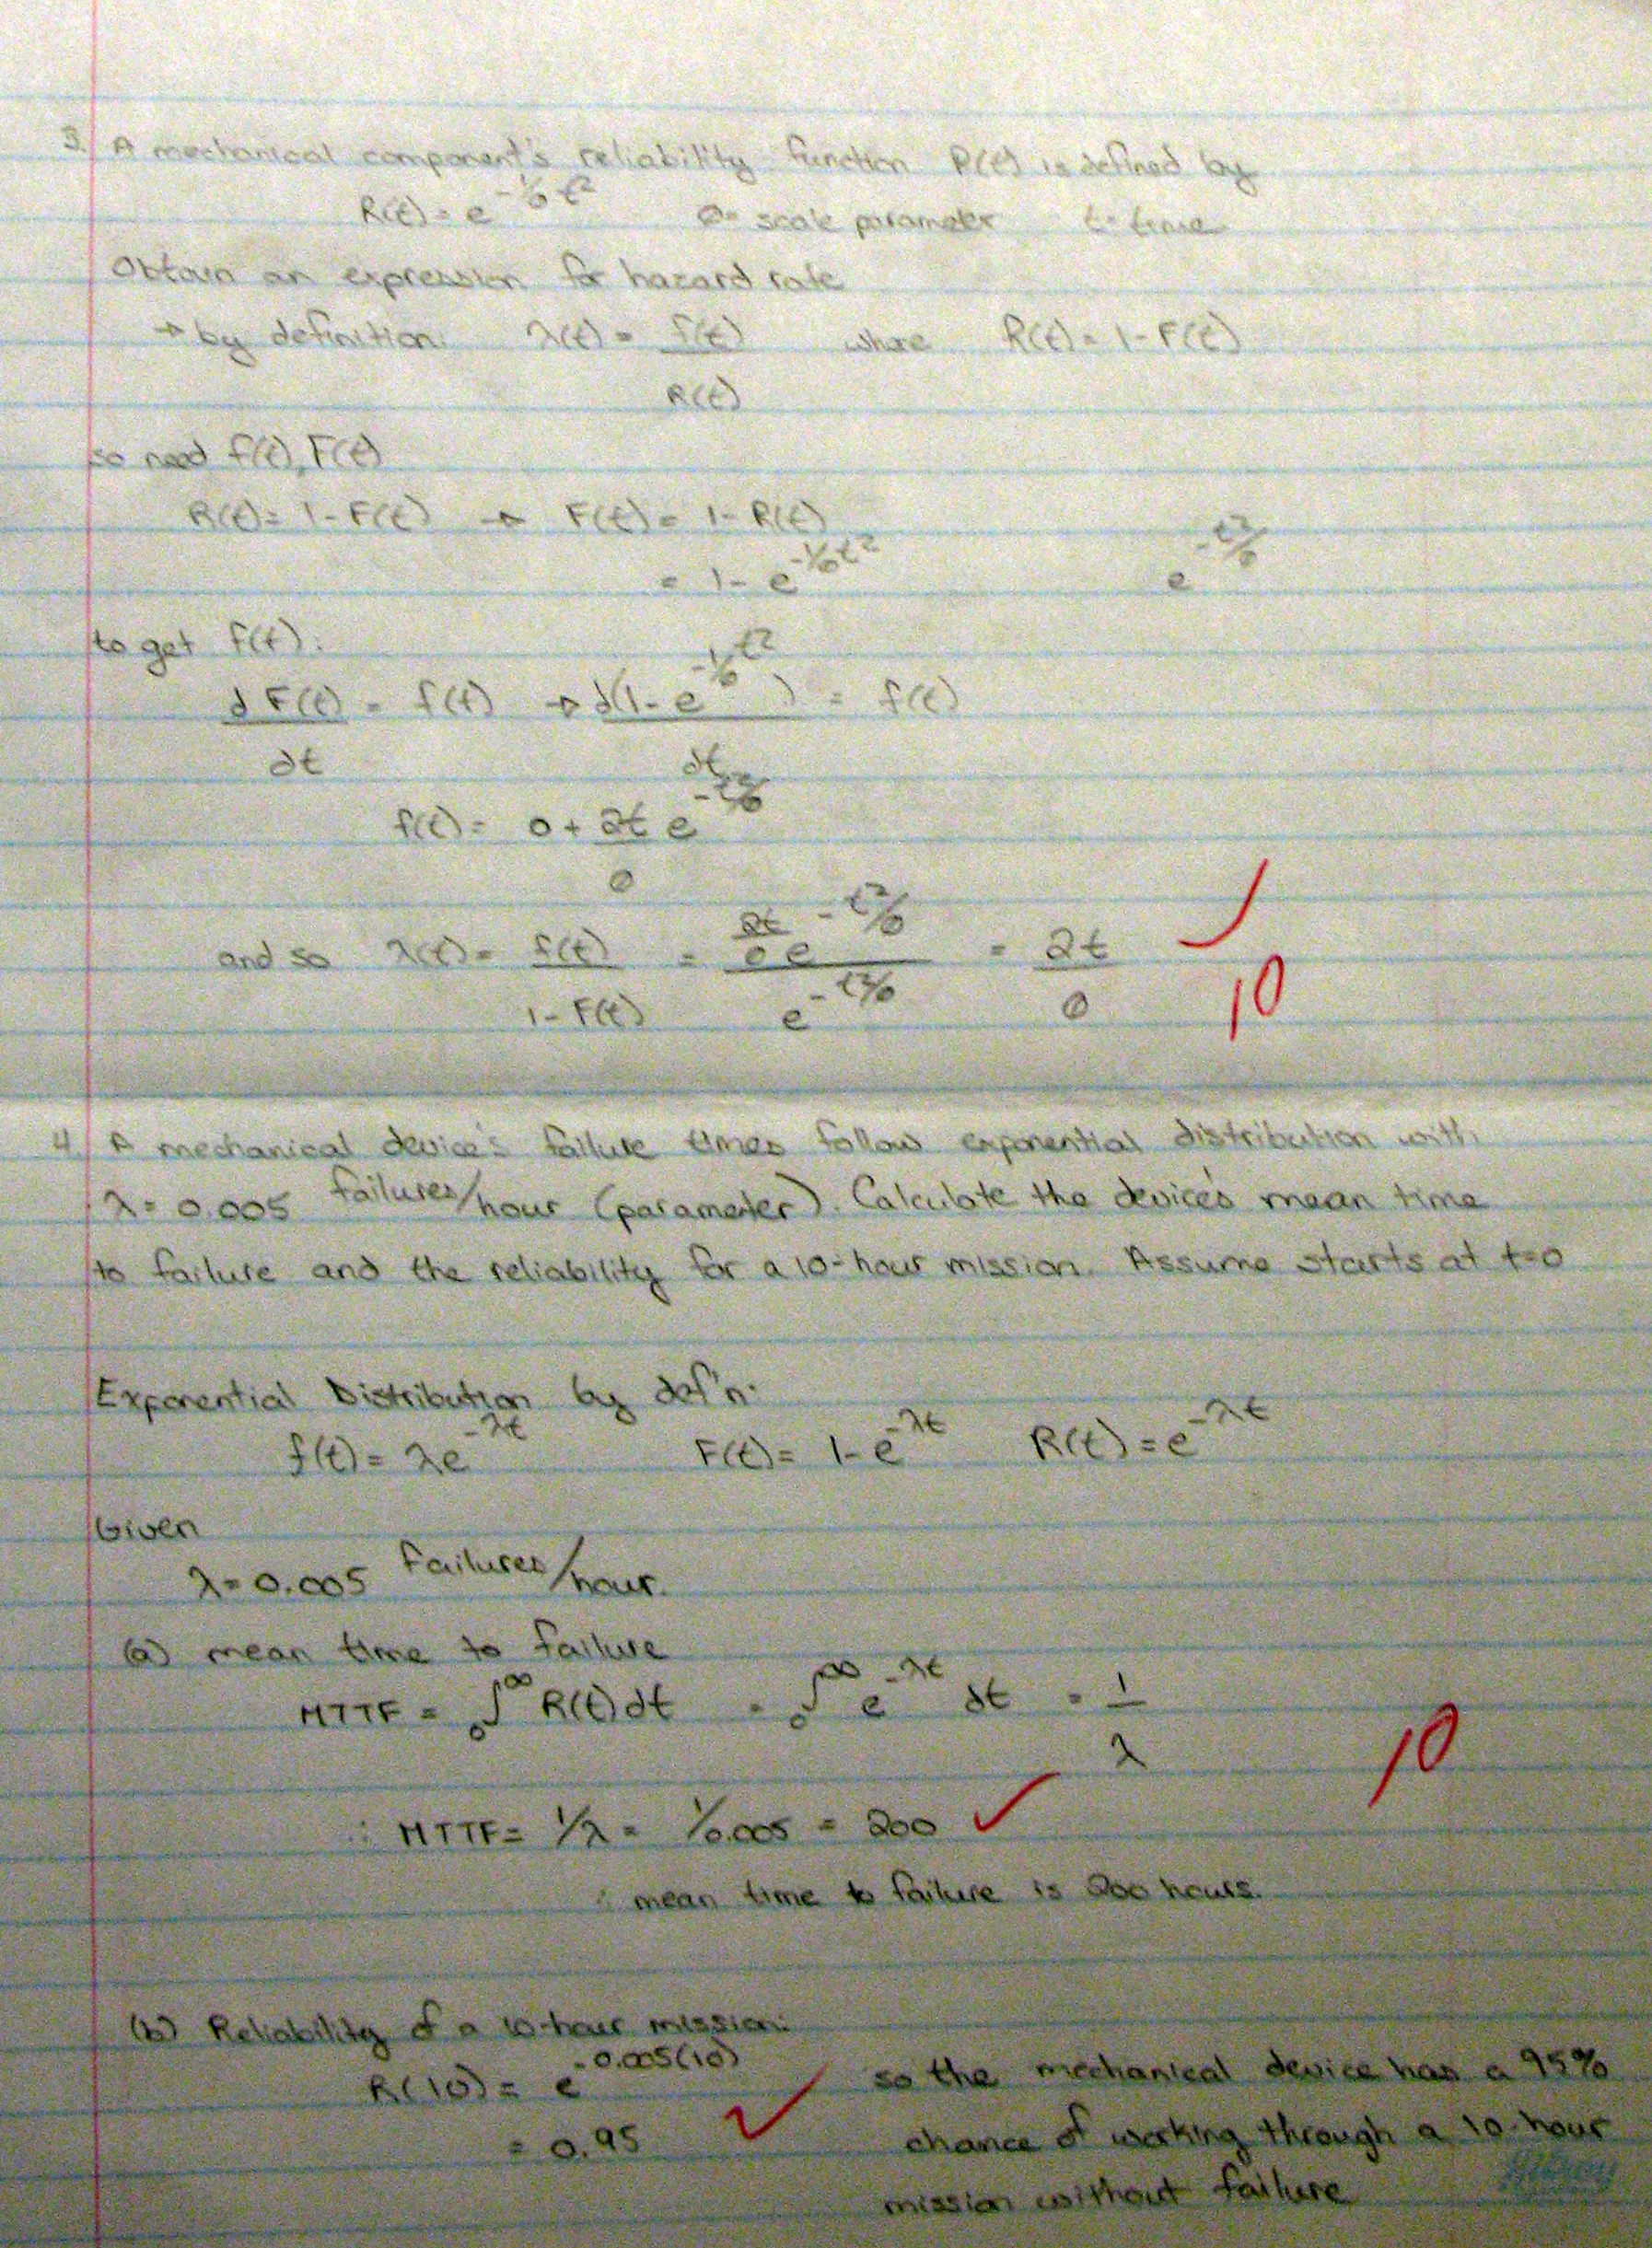 3. A mechanical component's reliability function R(t) is defined by
R(t) = e^{-1/θ t²} θ = scale parameter t = time
Obtain an expression for hazard rate
→ by definition: λ(t) = f(t) / R(t) where R(t) = 1 - F(t)
so need f(t), F(t)
R(t) = 1 - F(t) → F(t) = 1 - R(t)
= 1 - e^{-1/θ t²} e^{-t²/θ}
to get f(t):
dF(t)/dt = f(t) → d(1 - e^{-1/θ t²})/dt = f(t)
f(t) = 0 + 2t/θ e^{-t²/θ}
and so λ(t) = f(t) / 1 - F(t) = 2t/θ e^{-t²/θ} / e^{-t²/θ} = 2t/θ ✓
10
4. A mechanical device's failure times follow exponential distribution with
λ = 0.005 failures/hour (parameter). Calculate the device's mean time
to failure and the reliability for a 10-hour mission. Assume starts at t=0
Exponential Distribution by def'n:
f(t) = λe^{-λt} F(t) = 1 - e^{-λt} R(t) = e^{-λt}
Given
λ = 0.005 failures/hour.
(a) mean time to failure
MTTF = ∫₀^∞ R(t) dt = ∫₀^∞ e^{-λt} dt = 1/λ
10
∴ MTTF = 1/λ = 1/0.005 = 200 ✓
∴ mean time to failure is 200 hours.
(b) Reliability of a 10-hour mission:
R(10) = e^{-0.005(10)}
= 0.95 ✓
so the mechanical device has a 95%
chance of working through a 10-hour
mission without failure